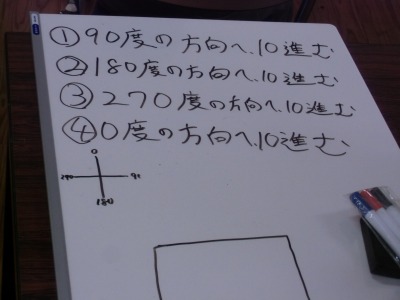 ①90度の方向へ、10進む
②180度の方向へ、10進む
③270度の方向へ、10進む
④0度の方向へ、10進む
0
270 90
180